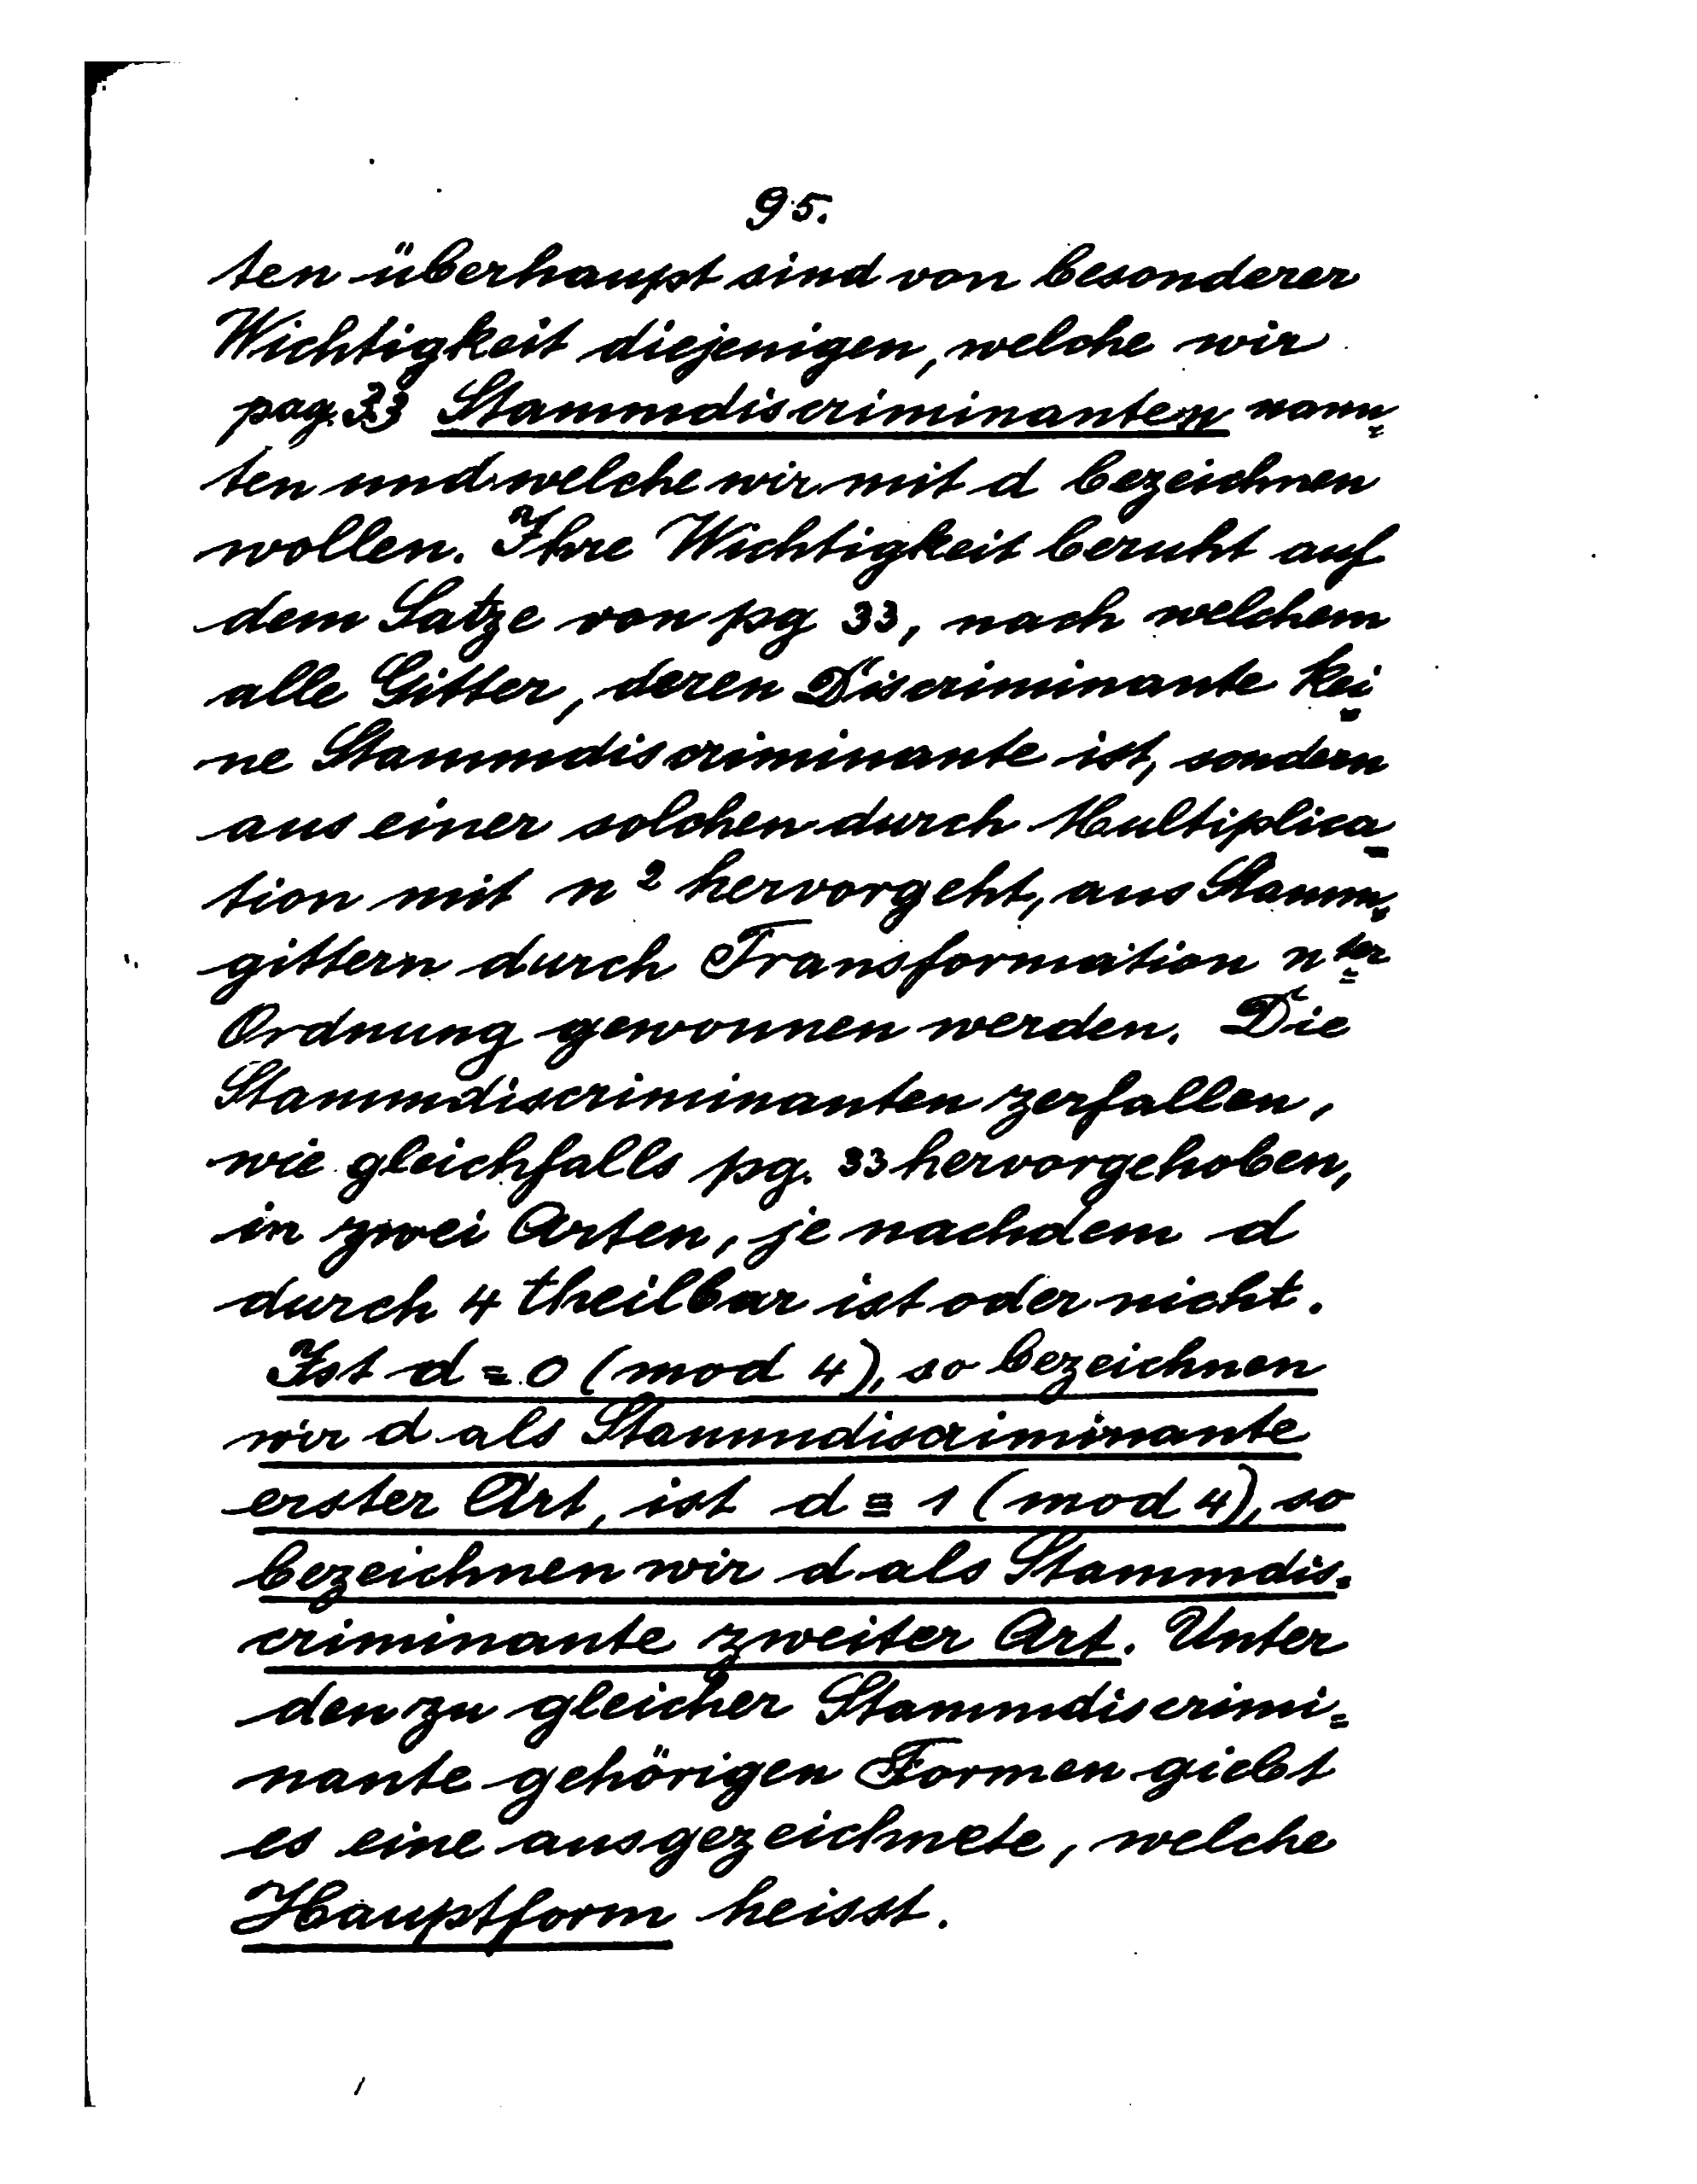 95.
ten überhaupt sind von besonderer
Wichtigkeit diejenigen, welche wir
pag. 33 Stammdiscriminanten nann=
ten und welche wir mit d bezeichnen
wollen. Ihre Wichtigkeit beruht auf
dem Satze von pg 33, nach welchem
alle Gitter, deren Discriminante kei=
ne Stammdiscriminante ist, sondern
aus einer solchen durch Multiplica=
tion mit n² hervorgeht, aus Stamm=
gittern durch Transformation n ter
Ordnung gewonnen werden. Die
Stammdiscriminanten zerfallen,
wie gleichfalls pg. 33 hervorgehoben,
in zwei Arten, je nachdem d
durch 4 theilbar ist oder nicht.
Ist d ≡ 0 (mod 4), so bezeichnen
wir d als Stammdiscriminante
erster Art, ist d ≡ 1 (mod 4), so
bezeichnen wir d als Stammdis=
criminante zweiter Art. Unter
den zu gleicher Stammdiscrimi=
nante gehörigen Formen giebt
es eine ausgezeichnete, welche
Hauptform heisst.